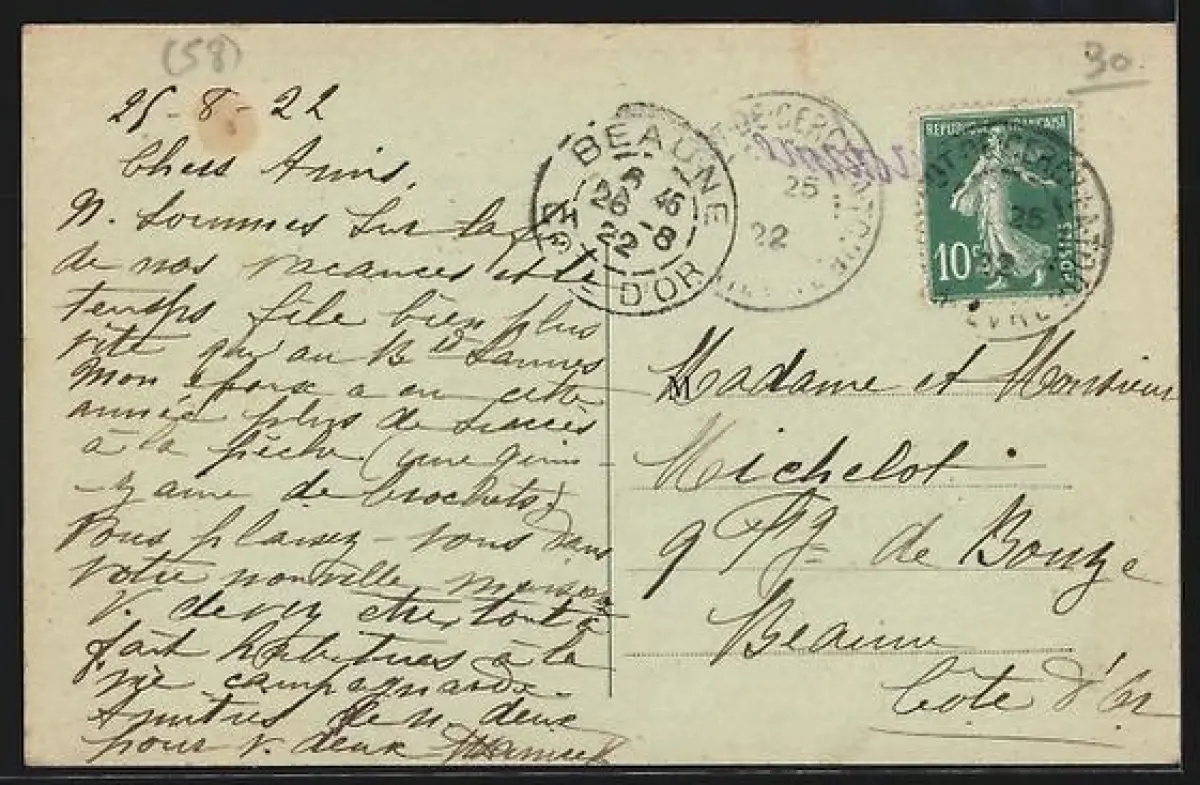 (58)
30
25-8-22
Chers Amis,
N. sommes sur la fin
de nos vacances et le
temps file bien plus
vite qu'au Bd Lannes
Mon époux a eu cette
année plus de succès
à la pêche (une quin-
-zaine de brochets)
Vous plaisez-vous dans
votre nouvelle maison
V. devez être tout à
fait habitués à la
vie campagnarde.
Amitiés de n. deux
pour v. deux
BEAUNE
8 45
26-8
22
COTE D'OR
25
22
REPUBLIQUE FRANÇAISE
10c
POSTES
25
22
Madame et Monsieur
Michelot
9 Fg de Bouze
Beaune
Côte d'Or